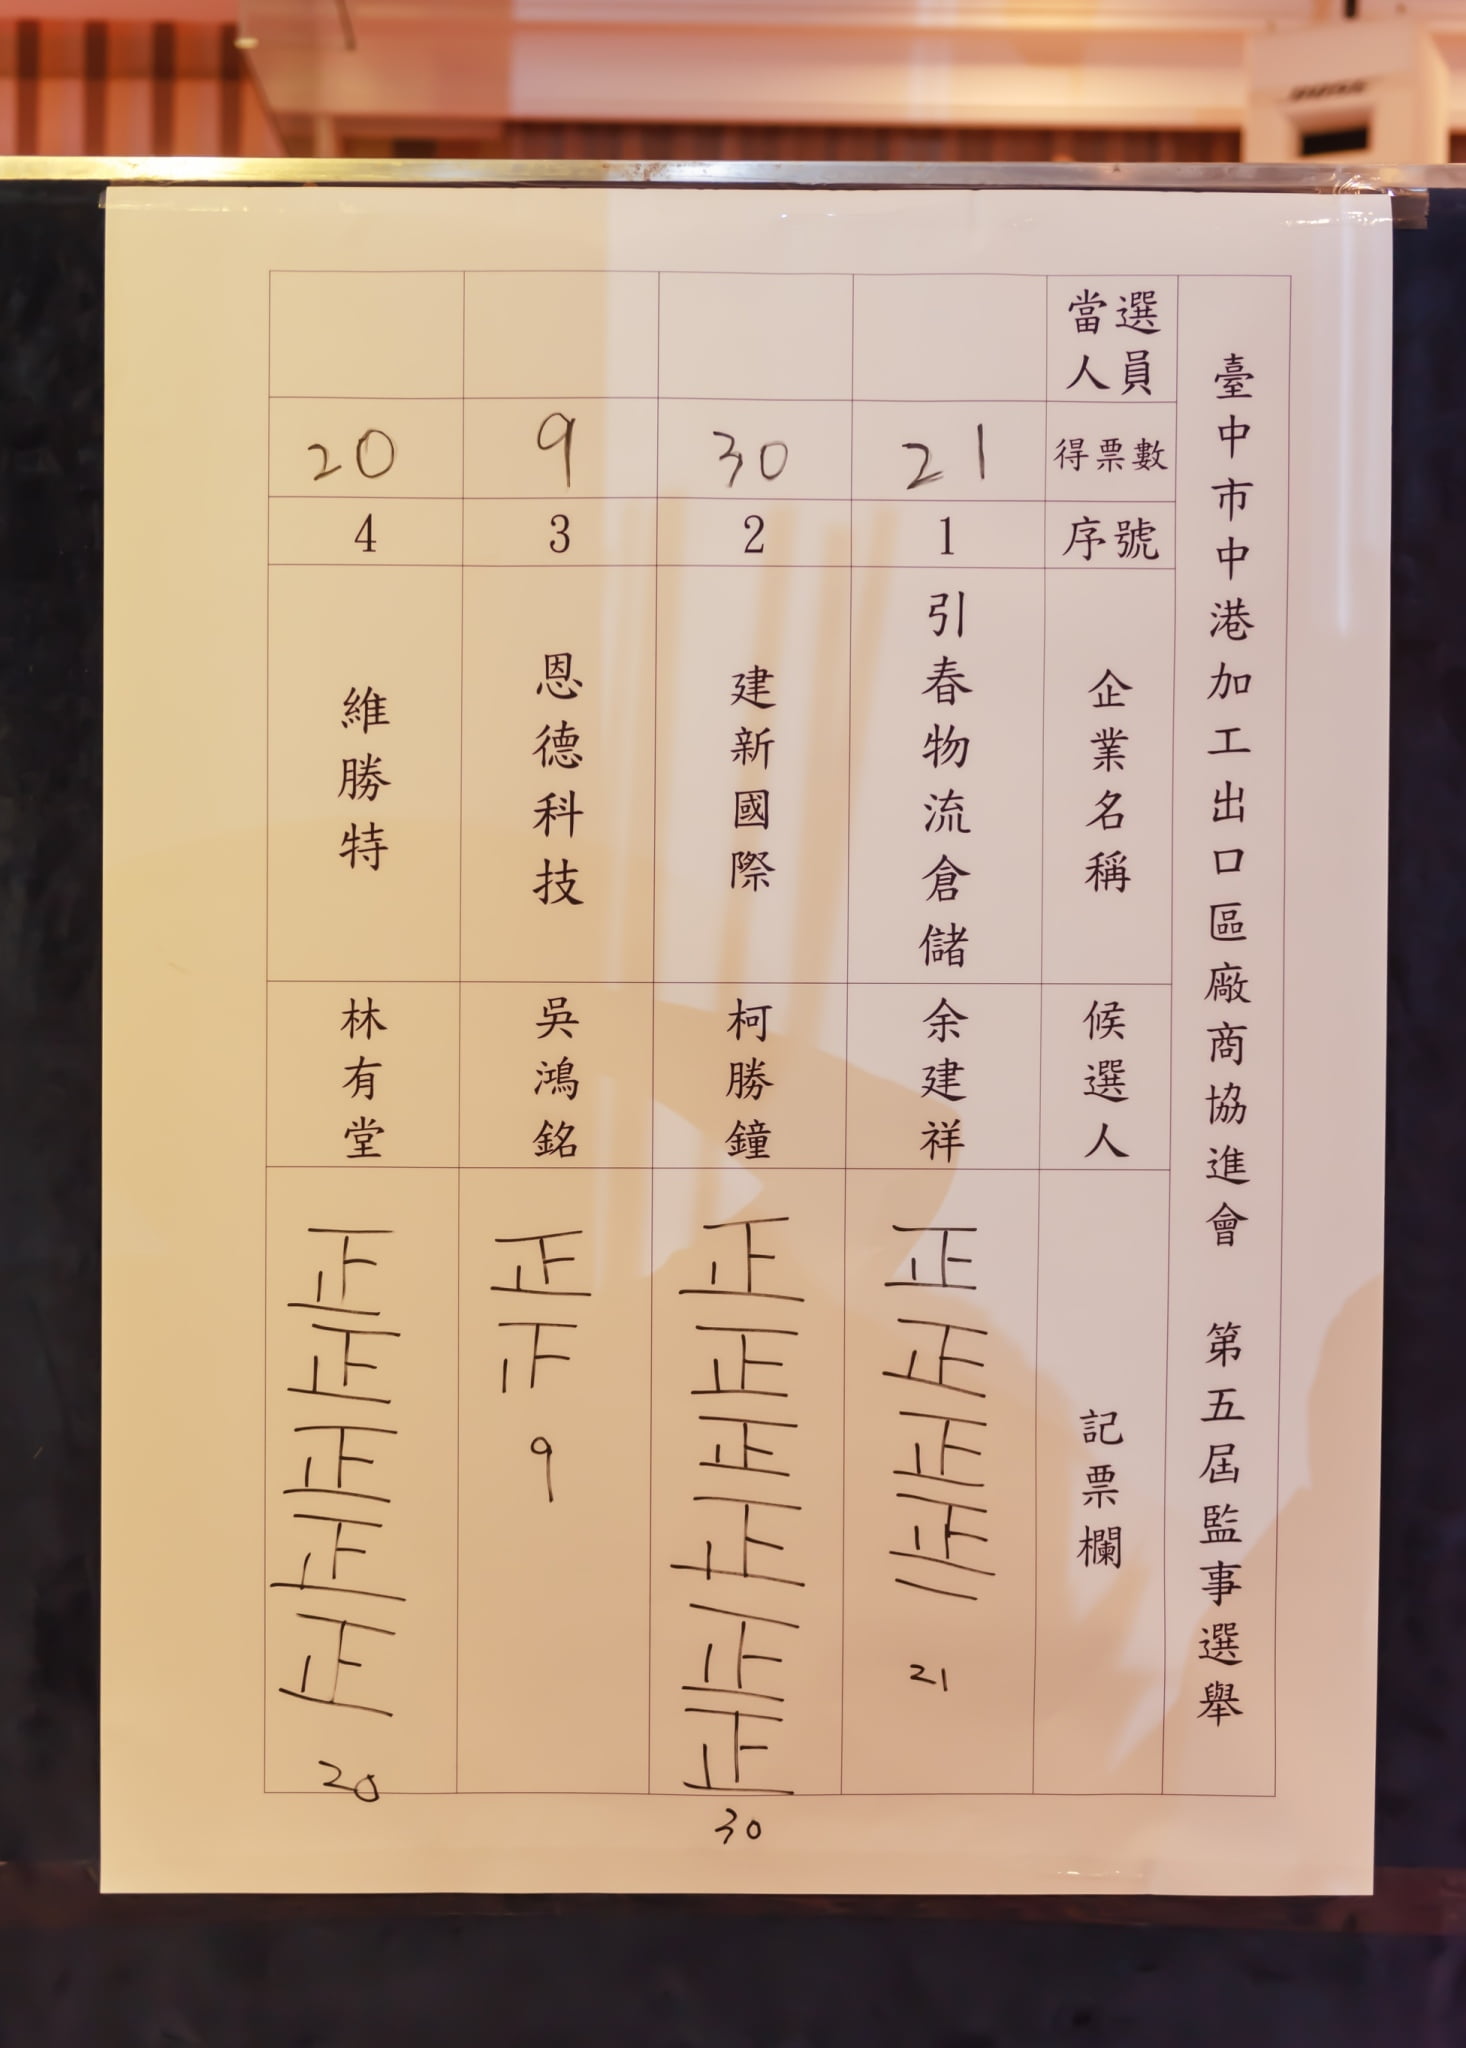 臺中市中港加工出口區廠商協進會 第五屆監事選舉
當選人員
得票數
序號
企業名稱
候選人
記票欄
21
1
引春物流倉儲
余建祥
正
正
正
正
一
21
30
2
建新國際
柯勝鐘
正
正
正
正
正
正
30
9
3
恩德科技
吳鴻銘
正
9
20
4
維勝特
林有堂
正
正
正
正
正
20